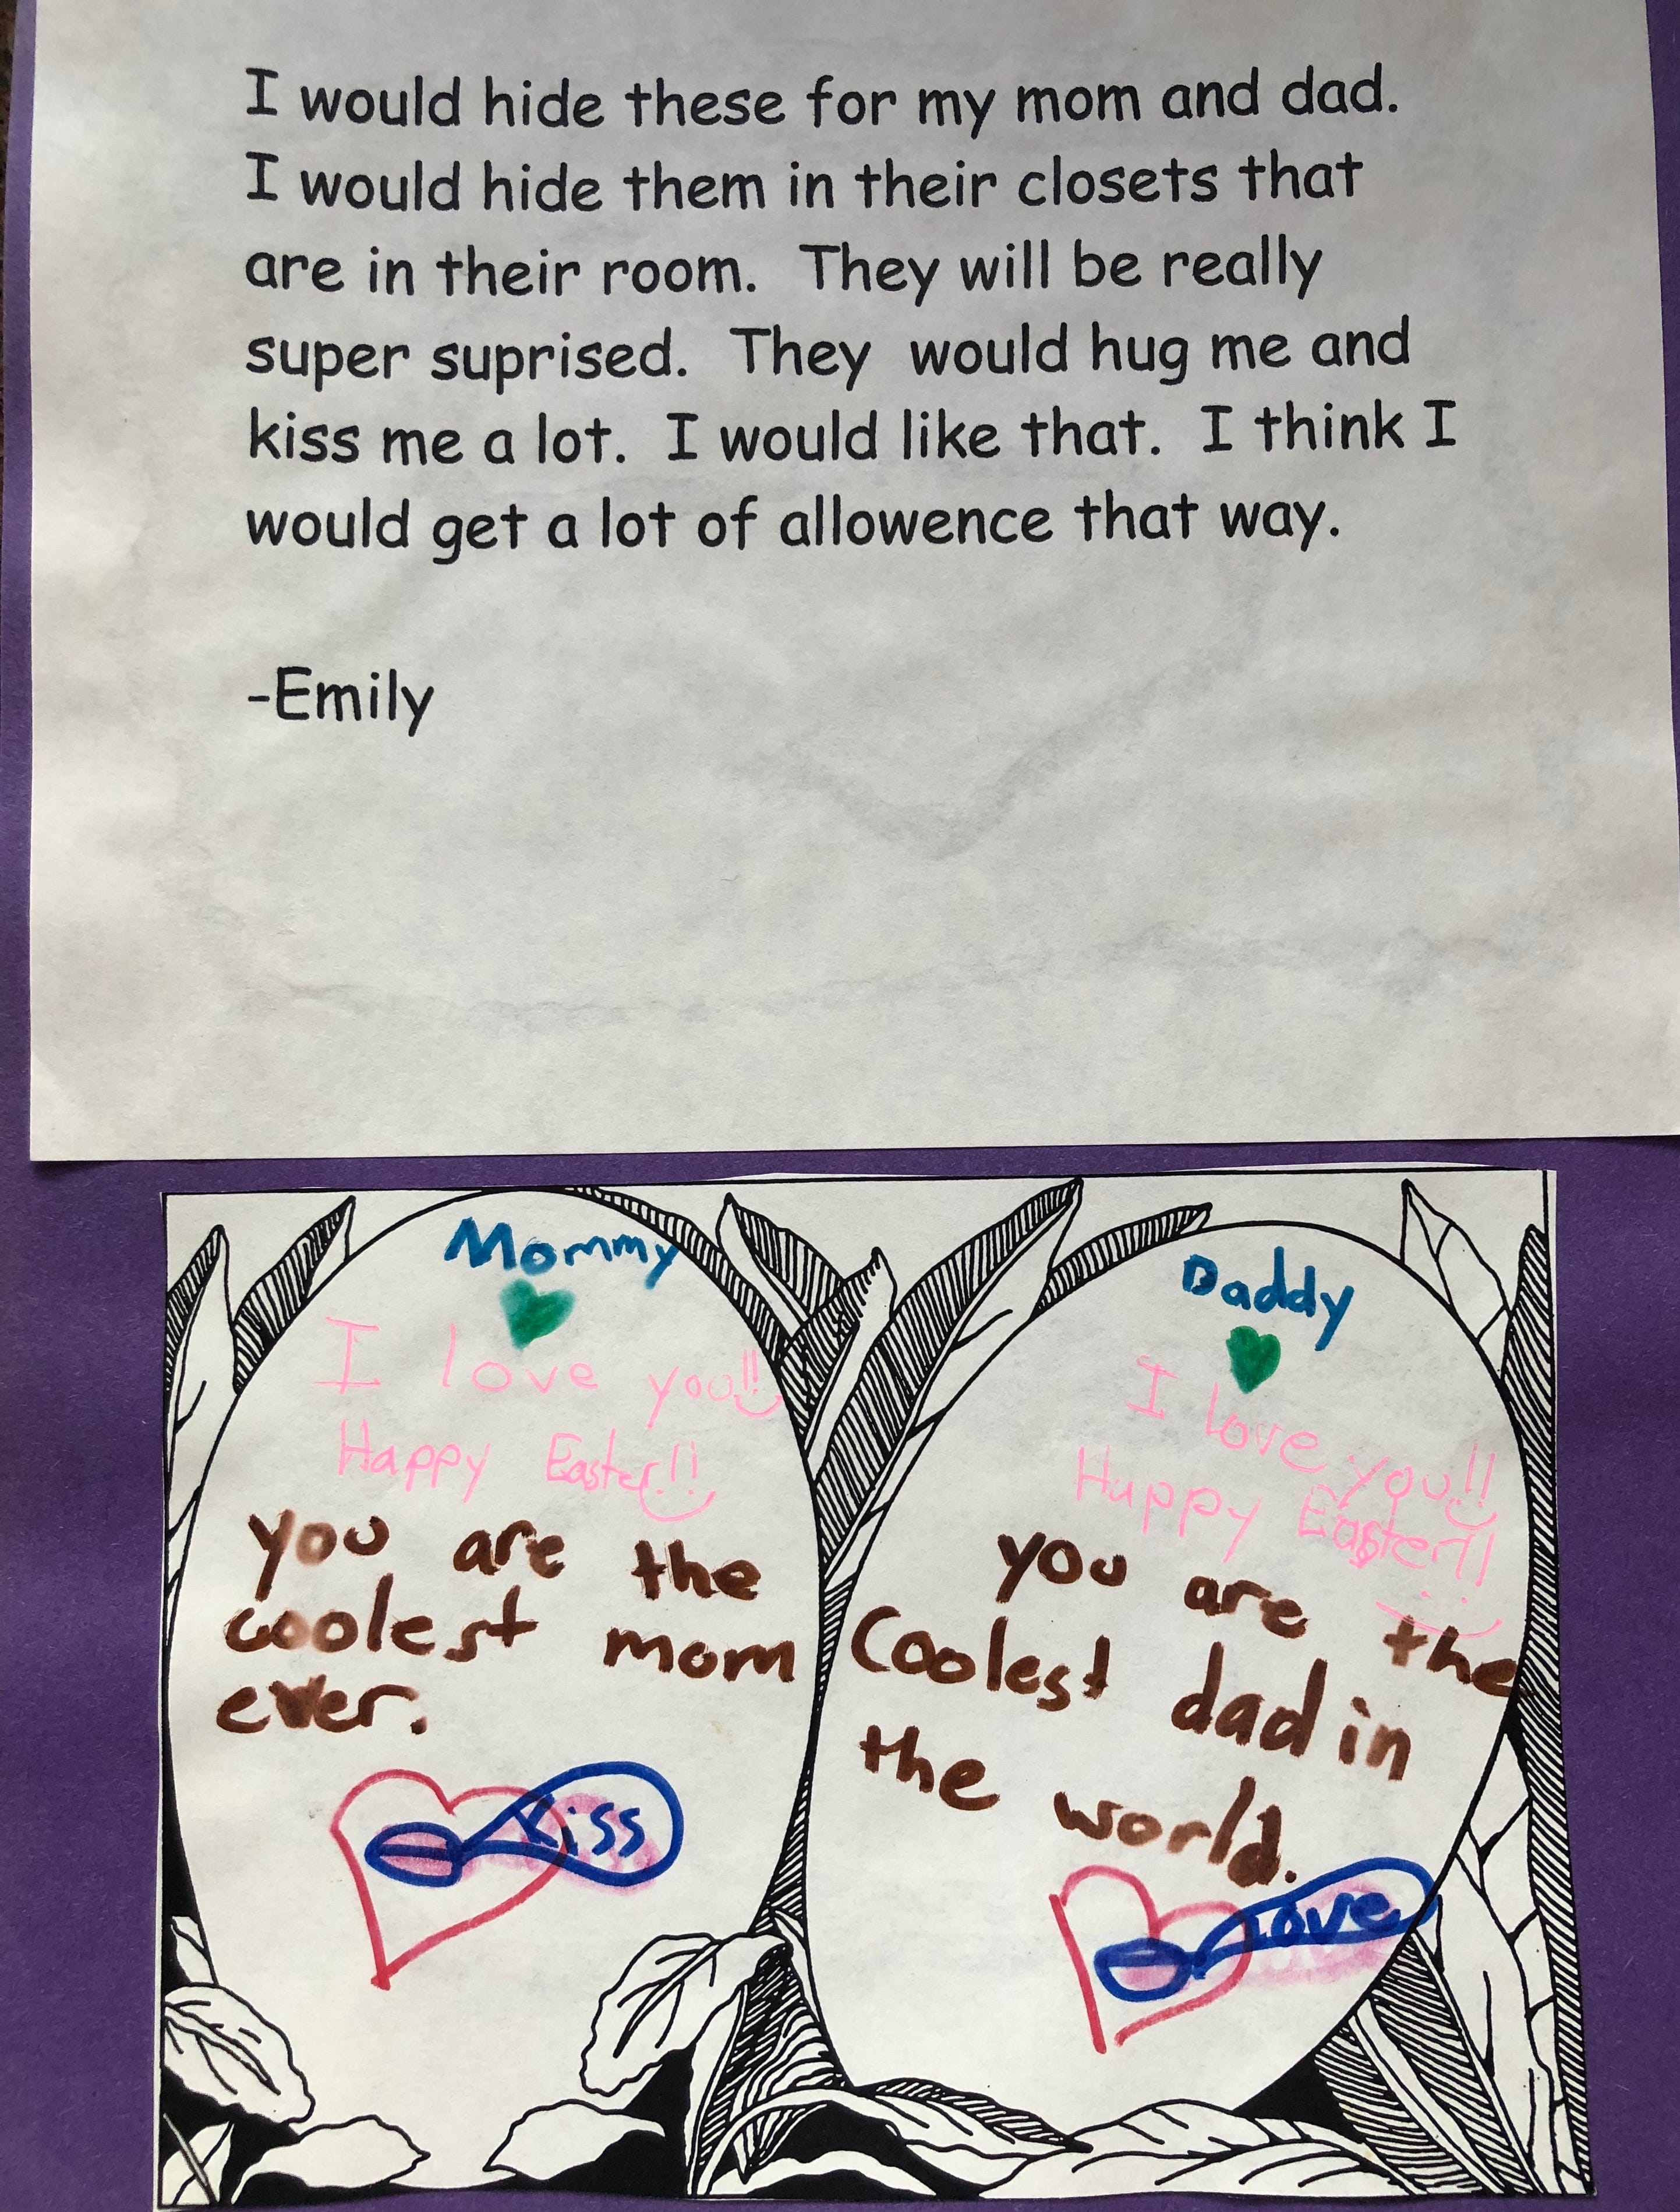 I would hide these for my mom and dad.
I would hide them in their closets that
are in their room.  They will be really
super suprised.  They  would hug me and
kiss me a lot.  I would like that.  I think I
would get a lot of allowence that way.
-Emily
Mommy
I love you!!
Happy Easter!!
you are the
coolest mom
ever.
Kiss
Daddy
I love you!!
Happy Easter!!
you are the
Coolest dad in
the world.
Love